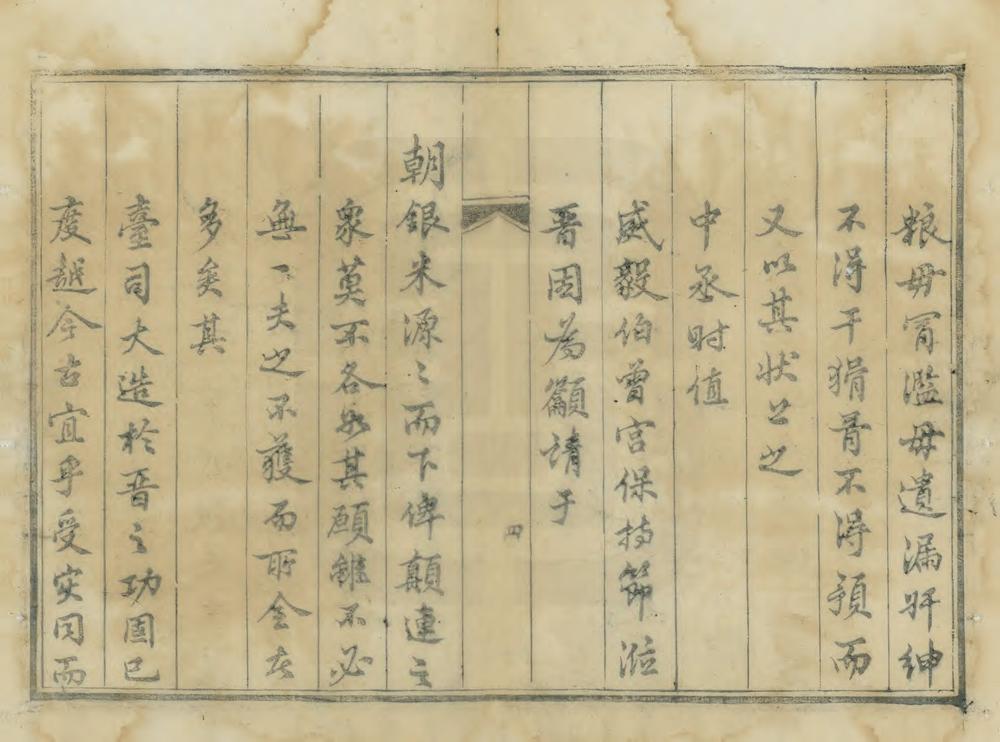 粮毋冐濫毋遺漏奸紳
不得干猾胥不得預而
又以其狀上之
中丞时值
威毅伯曾宫保持節涖
晋因為籲請于
四
朝銀米源〻而下俾顛連之
衆莫不各如其願雖不必
無一夫之不獲而所全者
多矣其
臺司大造於晋之功固已
度越今古宜乎受灾同而